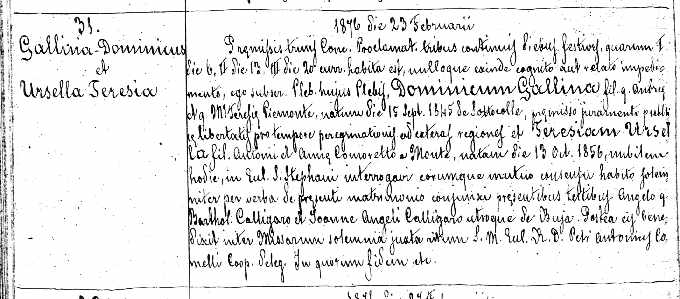 31.
Gallina Dominicus
et
Ursella Teresia
1876 die 23 Februarii
Prҽmissis trinis Conc. Proclamat. tribus continuis diebus festivis, quarum I
die 6, II die 13, III die 20 curr. habita est, nulloque exinde cognito aut relato impedi-
mento, ego subscr. Pleb. hujus Plebis, Dominicum Gallina fil. q. Andreҽ
et q. Mҽ Teresiҽ Piemonte, natum die 15 Sept. 1845 de Sottocolle, prҽmisso juramento
libertatis pro tempore peregrinationis ad ceteras regiones et Teresiam Ursel
la fil. Antonii et Annҽ Comoretto a Monte, natam die 13 Oct. 1856, nubilem
hodie, in Eccl. S. Stephani interrogavi eorumque mutuo consensu habito solem
niter per verba de presenti matrimonio conjunxi presentibus testibus Angelo q.
Barthol. Calligaro et Joanne Angeli Calligaro utroque de Buja. Postea eis bene
dixit inter Missarum solemnia juxta ritum S. M. Eccl. R. D. Petri Antonius Co
melli Coop. In quorum fidem etc.